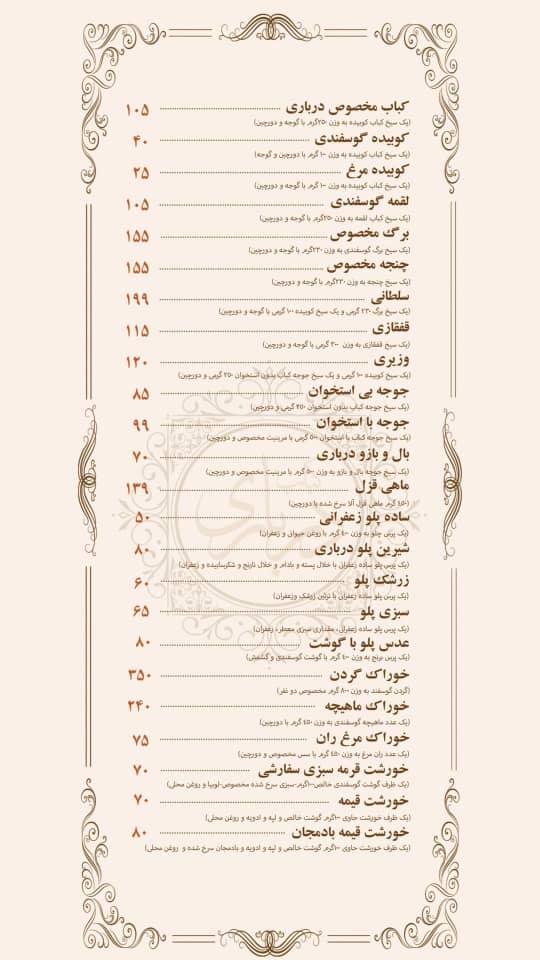 کباب مخصوص درباری ۱۰۵
(یک سیخ کباب کوبیده به وزن ۲۵۰گرم با گوجه و دورچین)
کوبیده گوسفندی ۴۰
(یک سیخ کباب کوبیده به وزن ۱۰۰ گرم با دورچین و گوجه)
کوبیده مرغ ۲۵
(یک سیخ کباب کوبیده به وزن ۱۰۰ گرم با گوجه و دورچین)
لقمه گوسفندی ۱۰۵
(یک سیخ کباب لقمه به وزن ۲۵۰گرم با گوجه و دورچین)
برگ مخصوص ۱۵۵
(یک سیخ برگ گوسفندی به وزن ۲۳۰گرم با گوجه و دورچین)
چنجه مخصوص ۱۵۵
(یک سیخ چنجه به وزن ۲۳۰گرم با گوجه و دورچین)
سلطانی ۱۹۹
(یک سیخ برگ ۲۳۰ گرمی و یک سیخ کوبیده ۱۰۰ گرمی با گوجه و دورچین)
قفقازی ۱۱۵
(یک سیخ قفقازی به وزن ۳۰۰ گرمی با گوجه و دورچین)
وزیری ۱۲۰
(یک سیخ کوبیده ۱۰۰ گرمی و یک سیخ جوجه کباب بدون استخوان ۲۵۰ گرمی و دورچین)
جوجه بی استخوان ۸۵
(یک سیخ جوجه کباب بدون استخوان ۳۵۰ گرمی و دورچین)
جوجه با استخوان ۹۹
(یک سیخ جوجه کباب با استخوان ۵۰۰ گرمی با مرینیت مخصوص و دورچین)
بال و بازو درباری ۷۰
(یک سیخ جوجه بال و بازو به وزن ۵۰۰ گرم با مرینیت مخصوص و دورچین)
ماهی قزل ۱۳۹
(۴۵۰ گرم ماهی قزل آلا سرخ شده با دورچین)
ساده پلو زعفرانی ۵۰
(یک پرس چلو به وزن ۴۰۰ گرم با روغن حیوانی و زعفران)
شیرین پلو درباری ۸۰
(یک پرس پلو ساده زعفرانی با خلال پسته و بادام و خلال نارنج و شکرساییده و زعفران)
زرشک پلو ۶۰
(یک پرس پلو ساده زعفرانی با تزئین زرشک وزعفران)
سبزی پلو ۶۵
(یک پرس پلو ساده زعفرانی، مقداری سبزی معطر، زعفران)
عدس پلو با گوشت ۸۰
(یک پرس برنج به وزن ۴۰۰ گرم با گوشت گوسفندی و کشمش)
خوراک گردن ۳۵۰
(گردن گوسفند به وزن ۸۰۰ گرم مخصوص دو نفر)
خوراک ماهیچه ۲۴۰
(یک عدد ماهیچه گوسفندی به وزن ۴۵۰ گرم با دورچین)
خوراک مرغ ران ۷۵
(یک عدد ران مرغ به وزن ۴۵۰ گرم با سس مخصوص و دورچین)
خورشت قرمه سبزی سفارشی ۷۰
(یک ظرف گوشت گوسفندی خالص۱۰۰گرم-سبزی سرخ شده مخصوص-لوبیا و روغن محلی)
خورشت قیمه ۷۰
(یک ظرف خورشت حاوی ۱۰۰گرم گوشت خالص و لپه و ادویه و روغن محلی)
خورشت قیمه بادمجان ۸۰
(یک ظرف خورشت حاوی ۱۰۰گرم گوشت خالص و لپه و ادویه و بادمجان سرخ شده و روغن محلی)